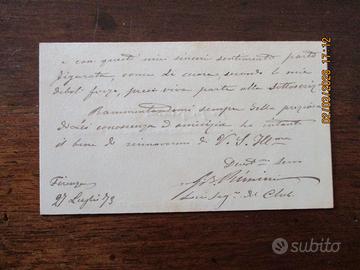 e con questi miei sinceri sentimenti parto
figurata, come di cuore, secondo le mie
debol forze, presi viva parte alla
Rammentandomi sempre della preziosa
di Lei conoscenza d'amicizia ho intanto
il bene di rinnovarmi di V. S. Ill.ma
Dev.mo Servo
Firenze
27 Luglio 73
del Club
02/03/2023 17:12
subito